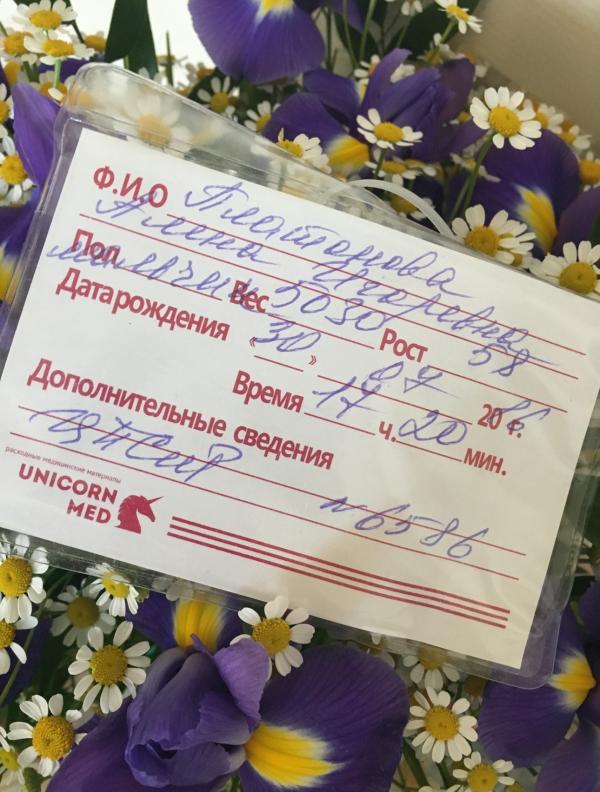 Ф.И.О Платонова
Алена Игоревна
Пол мальчик Вес 5030 Рост 58
Дата рождения « 30 » 07 20 16 г.
Время 17 ч. 20 мин.
Дополнительные сведения
ЦПСиР N6586
расходные медицинские материалы
UNICORN
MED